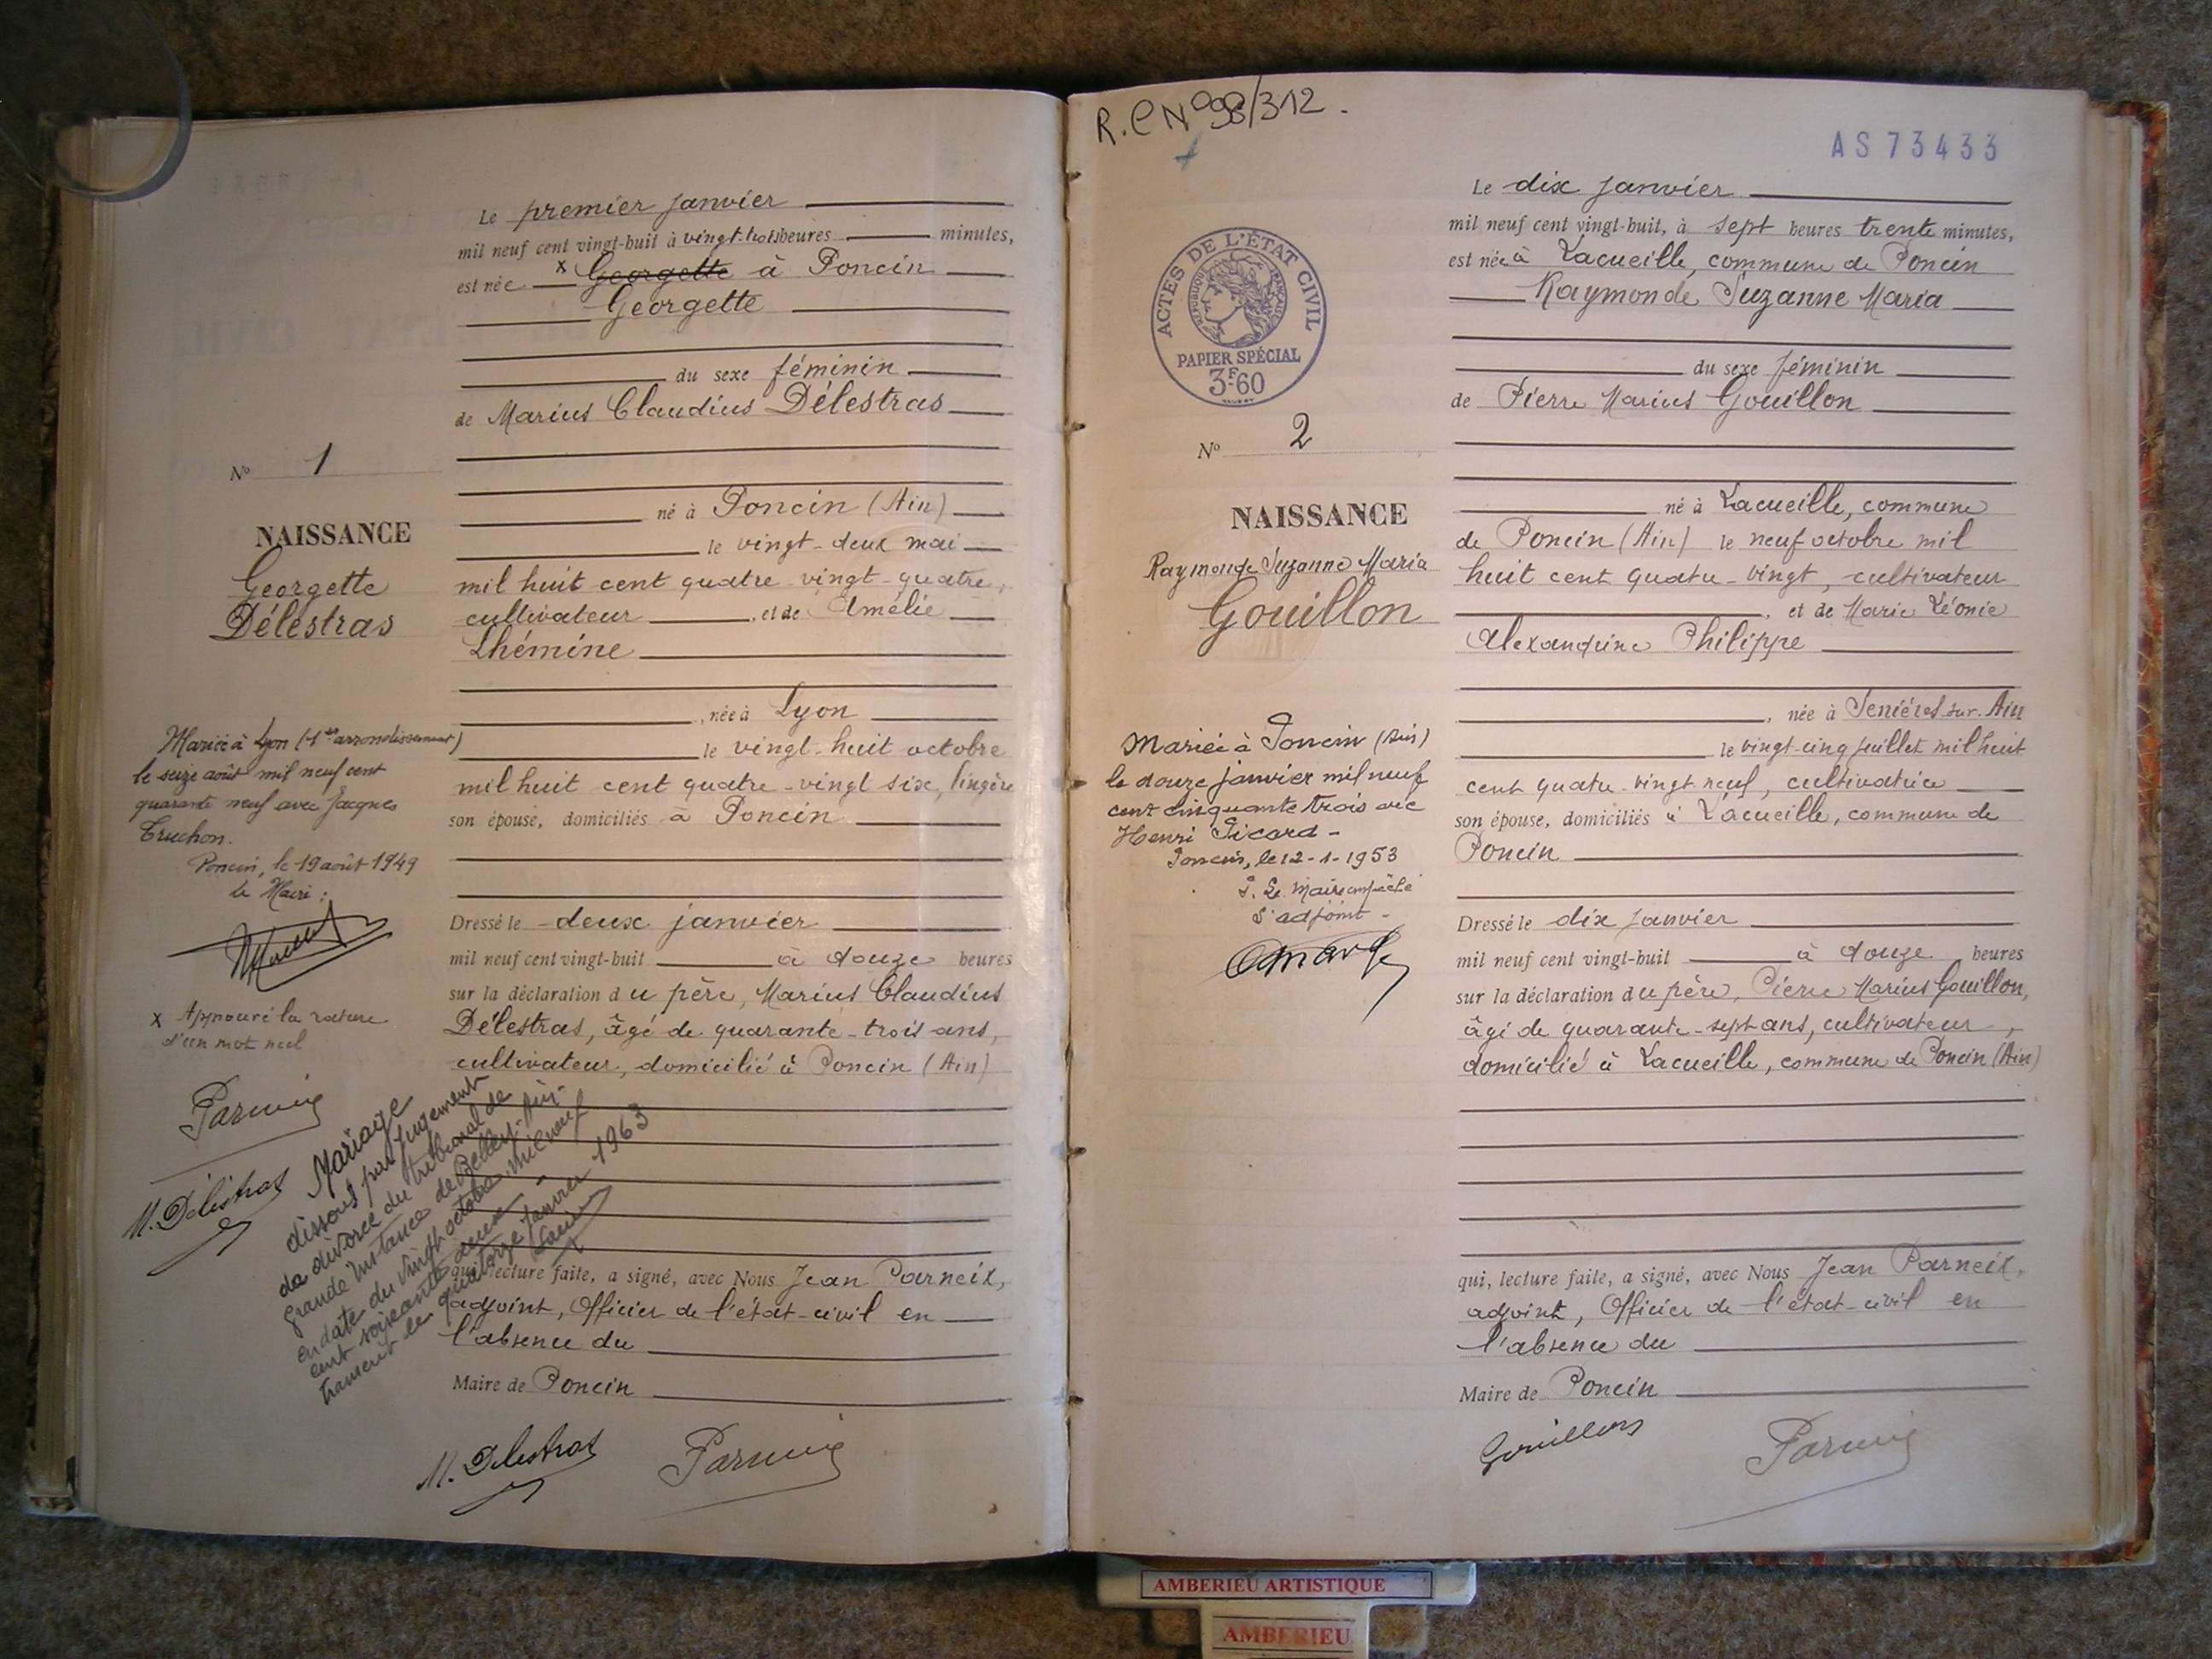 Le premier janvier
mil neuf cent vingt-huit à vingt-trois heures minutes,
est née x Georgette à Poncin
Georgette
du sexe féminin
de Marius Claudius Délestras
N° 1
né à Poncin (Ain)
NAISSANCE
le vingt-deux mai
Georgette
mil huit cent quatre-vingt-quatre,
Délestras
cultivateur, et de Amélie
Lhémine
née à Lyon
le vingt-huit octobre
mil huit cent quatre-vingt six, lingère
son épouse, domiciliés à Poncin
Mariée à Lyon (1er arrondissement)
le seize août mil neuf cent
quarante neuf avec Jacques
Truchon.
Poncin, le 19 août 1949
le Maire :
Dressé le deux janvier
mil neuf cent vingt-huit à douze heures
sur la déclaration du père, Marius Claudius
Délestras, âgé de quarante-trois ans,
cultivateur, domicilié à Poncin (Ain)
x Approuvé la rature
d'un mot nul
Parneix
M. Délestras
Mariage
dissous par jugement
de divorce du tribunal de
grande instance de Belley-Ain-
en date du vingt octobre mil neuf
cent soixante deux -
transcrit le quatorze janvier 1963
qui, lecture faite, a signé, avec Nous Jean Parneix,
adjoint, Officier de l'état-civil en
l'absence du
Maire de Poncin
M. Delestras Parneix
R.C N° 98/312.
AS73433
Le dix janvier
mil neuf cent vingt-huit, à sept heures trente minutes,
est née à Lacueille, commune de Poncin
Raymonde Suzanne Maria
du sexe féminin
de Pierre Marius Gouillon
ACTES DE L'ÉTAT CIVIL
RÉPUBLIQUE FRANÇAISE
PAPIER SPÉCIAL
3F60
N° 2
né à Lacueille, commune
NAISSANCE
de Poncin (Ain) le neuf octobre mil
Raymonde Suzanne Maria
huit cent quatre-vingt, cultivateur
Gouillon
, et de Marie Léonie
Alexandrine Philippe
, née à Serrières-sur-Ain
le vingt-cinq juillet mil huit
cent quatre-vingt-neuf, cultivatrice
son épouse, domiciliés à Lacueille, commune de
Poncin
Mariée à Poncin (Ain)
le douze janvier mil neuf
cent cinquante trois avec
Henri Picard -
Poncin, le 12-1-1953
P. Le Maire empêché
L'adjoint -
Dressé le dix janvier
mil neuf cent vingt-huit à douze heures
sur la déclaration du père, Pierre Marius Gouillon,
âgé de quarante-sept ans, cultivateur,
domicilié à Lacueille, commune de Poncin (Ain)
qui, lecture faite, a signé, avec Nous Jean Parneix,
adjoint, Officier de l'état-civil en
l'absence du
Maire de Poncin
Gouillon Parneix
AMBERIEU ARTISTIQUE
AMBERIEU